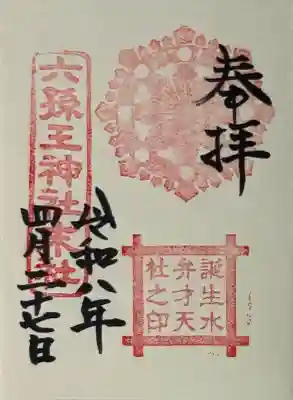 奉拝
誕生水
弁才天
社之印
六孫王神社末社
令和八年
四月二十七日